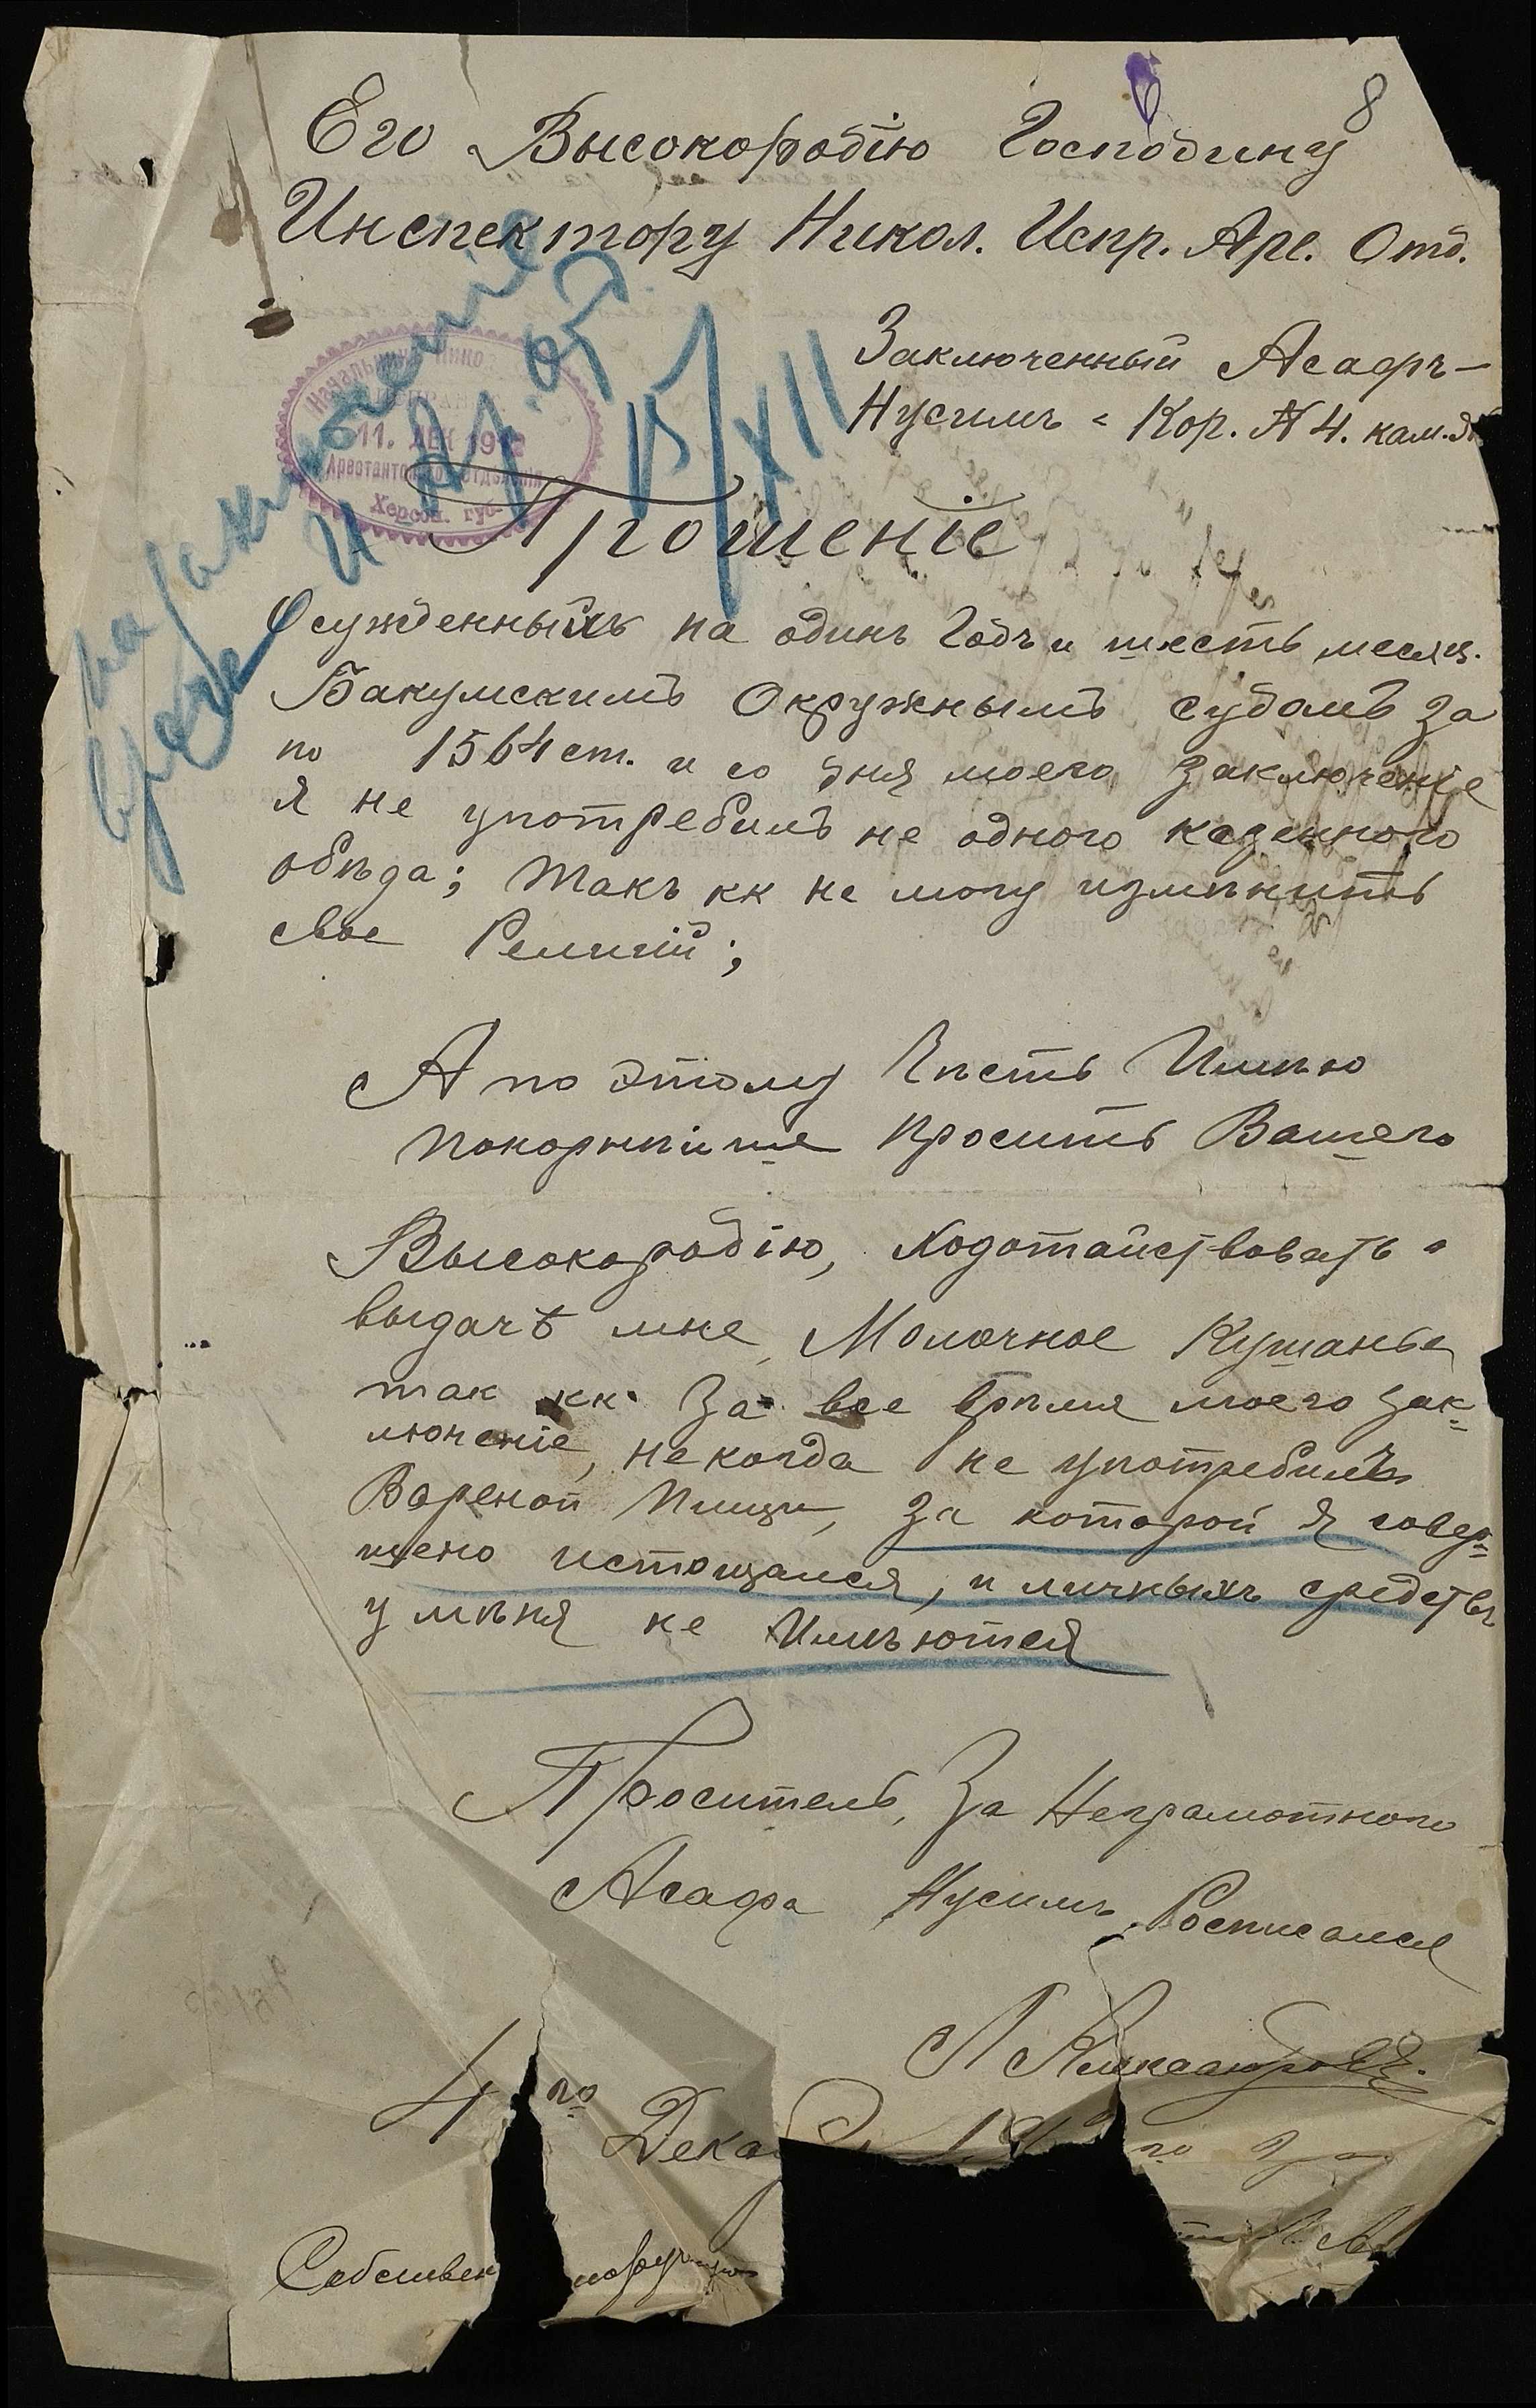 8
Его Высокородію Господину
Инспектору Никол. Испр. Аре. Отд.
Заключенный Асафъ-
Нусимъ - Кор. № 4. кам.
11. ДЕК 191
Херсон. губ.
на заключеніе
врача
15/XII
Прошеніе
Осужденныихъ на одинъ Годъ и шесть месяц.
Бакумскимъ Окружнымъ судомъ за
по 1564 ст. и со дня моего заключеніе
я не употребилъ не одного казенного
обѣда; такъ кк не могу измѣнить
свое Религій;
А по этому Честь Имѣю
покорнѣише просить Вашего
Высокородію, ходотайствовать о
выдачѣ мне, Молочное Кушанье
так кк. За все время моего зак=
люченіе, некогда не употребилъ
Вареной пищи, за которой я совер=
шено истощался, и личныхъ средствъ
у мѣня не Имѣются
Проситель, За Неграмотного
Асафа Нусимъ Росписался
Л Александровъ.
4 го Дека
Собствен